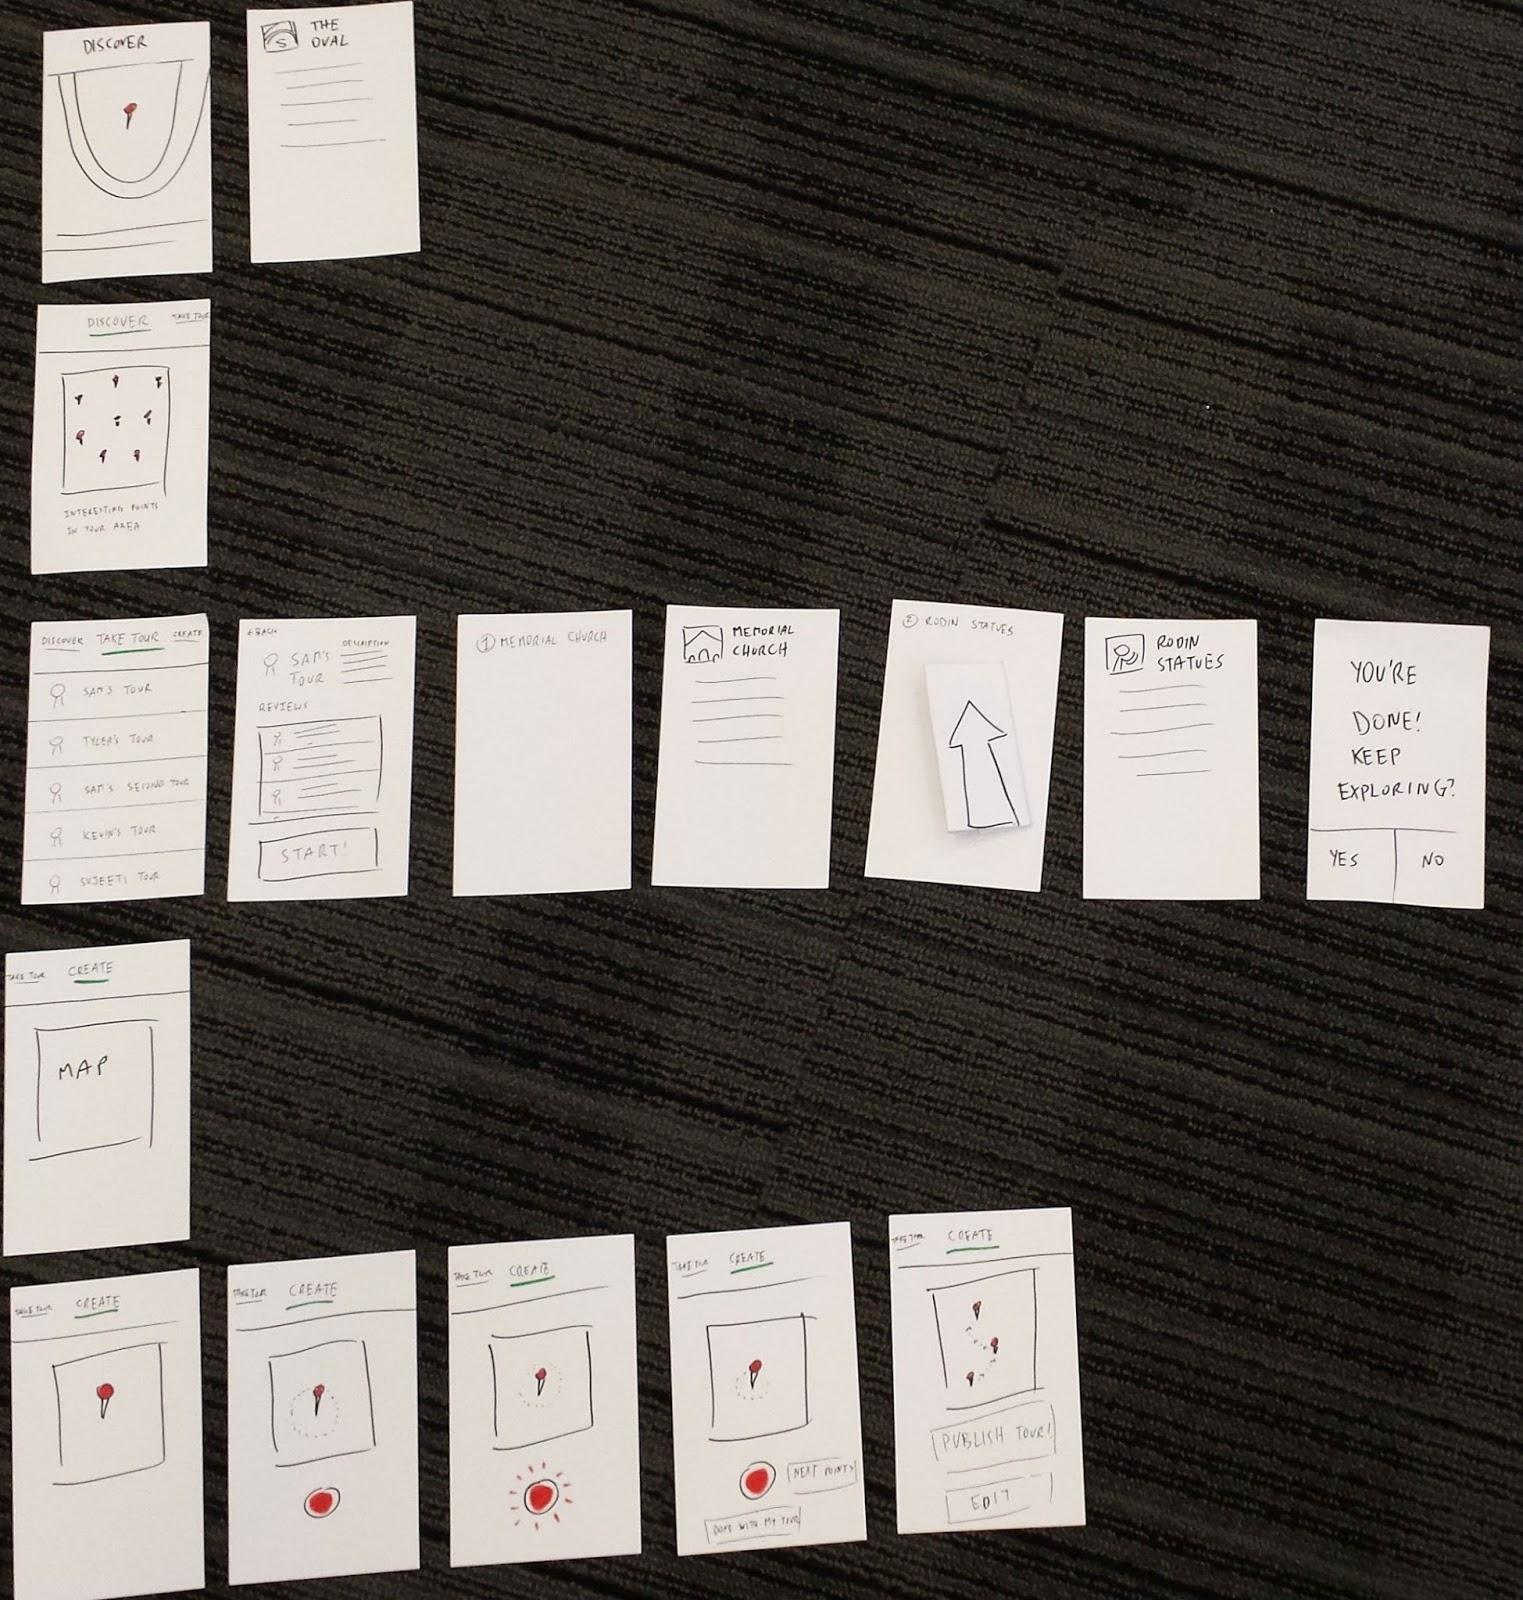 DISCOVER
THE
OVAL
DISCOVER TAKE TOUR
INTERESTING POINTS
IN YOUR AREA
DISCOVER TAKE TOUR CREATE
SAM'S TOUR
TYLER'S TOUR
SAM'S SECOND TOUR
KEVIN'S TOUR
TOUR
BACK
DESCRIPTION
SAM'S
TOUR
REVIEWS
START!
1 MEMORIAL CHURCH
MEMORIAL
CHURCH
2 RODIN STATUES
RODIN
STATUES
YOU'RE
DONE!
KEEP
EXPLORING?
YES NO
TAKE TOUR CREATE
MAP
TAKE TOUR CREATE
TAKE TOUR CREATE
TAKE TOUR CREATE
TAKE TOUR CREATE
NEXT POINTS
DONE WITH MY TOUR
TAKE TOUR CREATE
PUBLISH TOUR!
EDIT